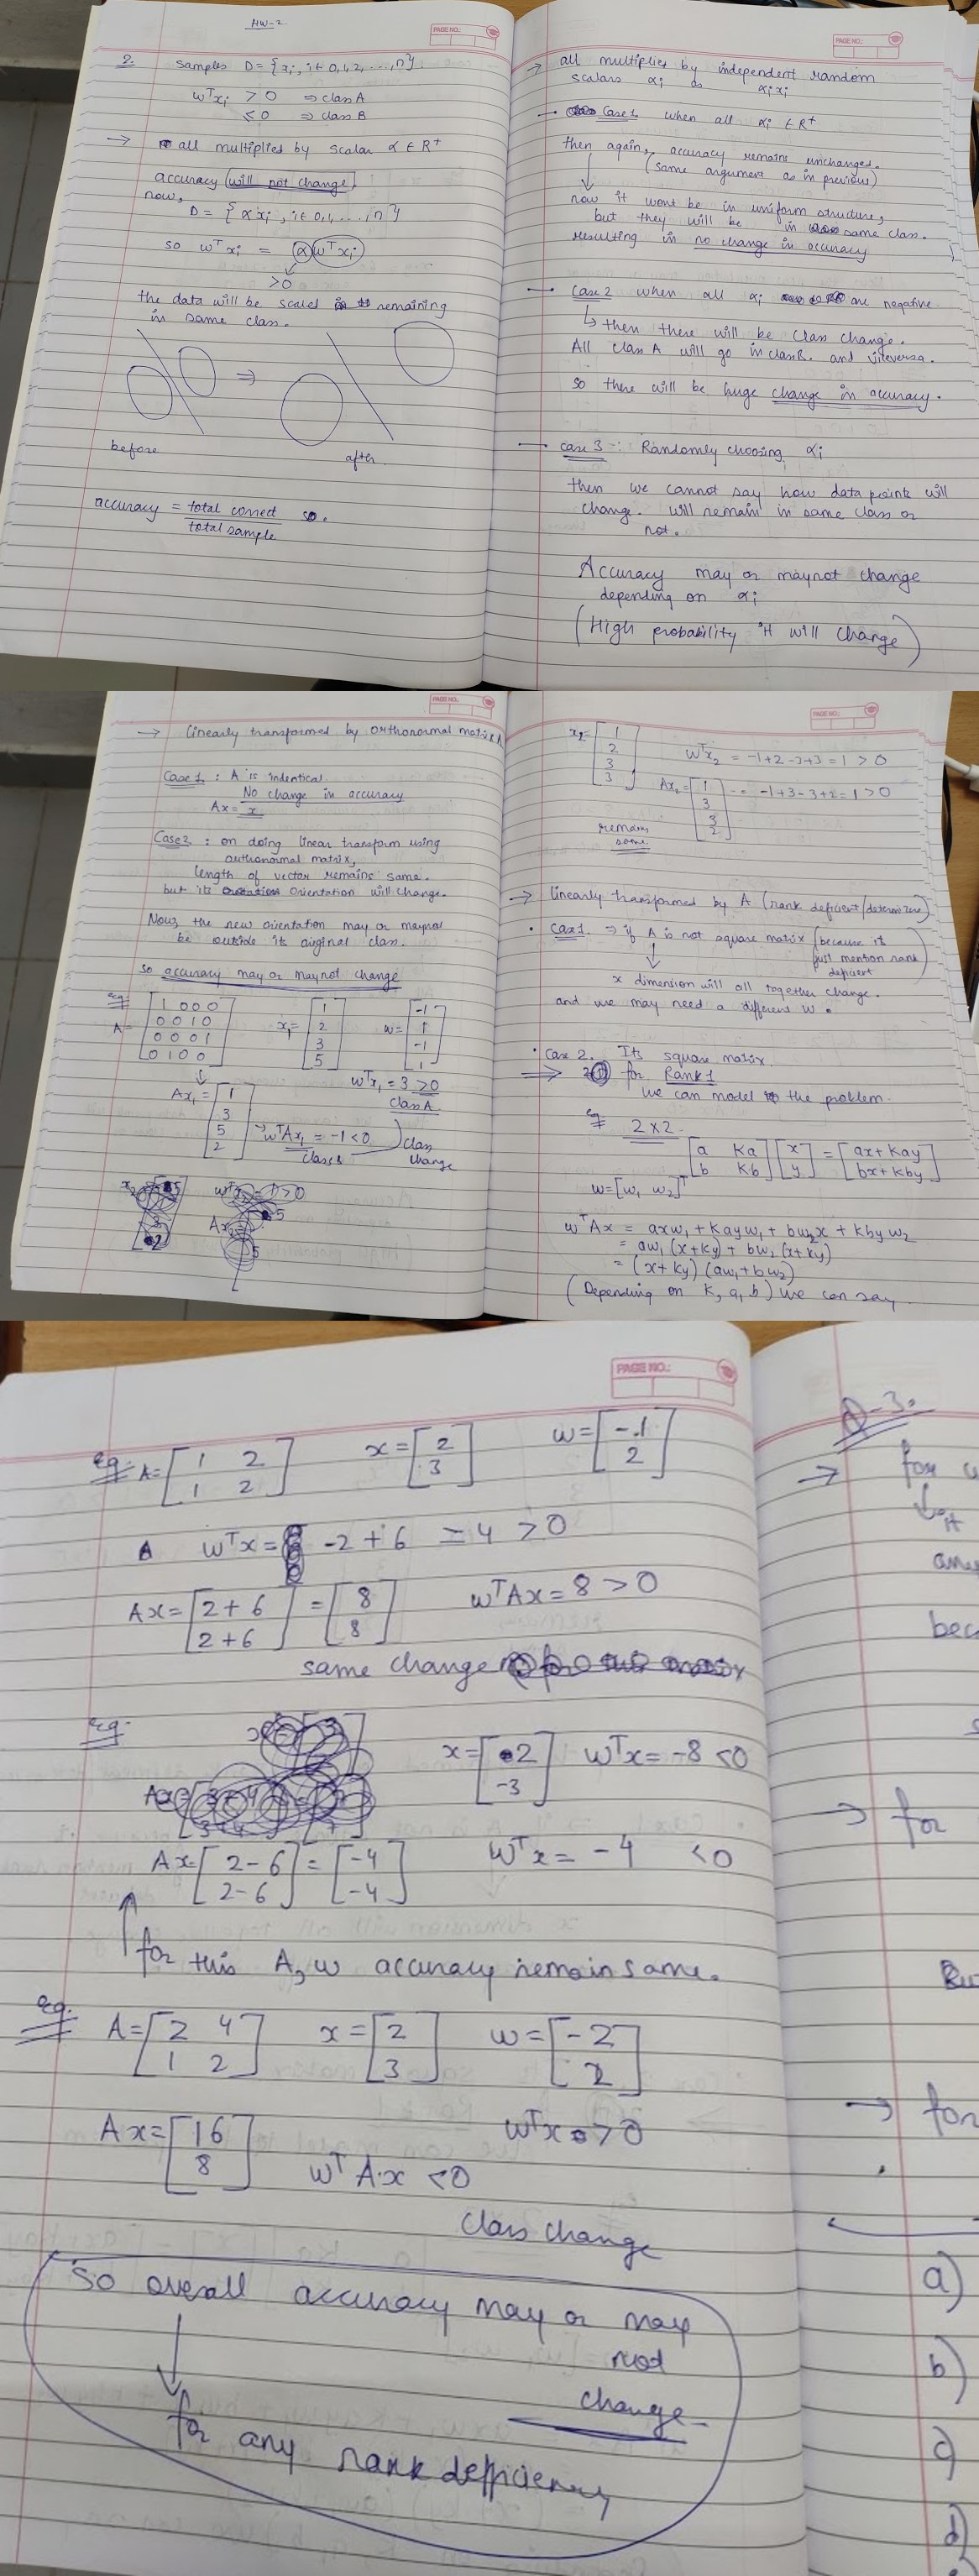 HW-2
PAGE NO.:
2.
samples D = {xi, i∈ 0,1,2,...,n}
wᵀxi > 0 ⇒ class A
≤ 0 ⇒ class B
→ all multiplies by scalar α ∈ R⁺
accuracy will not change.
now,
D = {αxi, i∈ 0,1,...,n}
so wᵀxi = α wᵀxi
>0
the data will be scaled remaining
in same class.
⇒
before
after
accuracy = total correct / total sample so.
PAGE NO.:
→ all multiplies by independent random
scalars αi as αixi
— Case 1 when all αi ∈ R⁺
then again, accuracy remains unchanged.
(same argument as in previous)
now it wont be in uniform structure,
but they will be in same class.
resulting in no change in accuracy
— Case 2 when all αi are negative
↳ then there will be class change.
All class A will go in class B. and viceversa.
so there will be huge change in accuracy.
— Case 3 :- Randomly choosing αi
then we cannot say how data points will
change. will remain in same class or
not.
Accuracy may or maynot change
depending on αi
(High probability it will change)
PAGE NO.:
→ linearly transformed by orthonormal matrix A
Case 1 : A is indentical
No change in accuracy
Ax = x
Case 2 : on doing linear transform using
outhonormal matrix,
length of vector remains same.
but its orientation will change.
Now, the new orientation may or maynot
be outside its original class.
so accuracy may or maynot change
eg
A = [1 0 0 0
0 0 1 0
0 0 0 1
0 1 0 0]
x₁ = [1
2
3
5]
w = [-1
1
-1
1]
wᵀx₁ = 3 > 0
class A
Ax₁ = [1
3
5
2]
→ wᵀAx₁ = -1 < 0
class B
class
change
PAGE NO.:
x₂ = [1
2
3
3]
wᵀx₂ = -1+2-3+3 = 1 > 0
Ax₂ = [1
3
3
2]
-1+3-3+2 = 1 > 0
remains
same
→ linearly transformed by A (rank deficient/determ zero)
• Case 1. ⇒ if A is not square matrix (because it
just mention rank
deficient)
x dimension will all together change.
and we may need a different w.
• Case 2. Its square matrix
⇒ for Rank 1
we can model the problem.
eg 2×2
[a Ka
b Kb] [x
y] = [ax+kay
bx+kby]
w = [w₁ w₂]ᵀ
wᵀAx = axw₁ + kayw₁ + bw₂x + kbyw₂
= aw₁(x+ky) + bw₂(x+ky)
= (x+ky)(aw₁+bw₂)
(Depending on k, a, b) we can say
PAGE NO.:
eg:- A = [1 2
1 2]
x = [2
3]
w = [-1
2]
wᵀx = -2+6 = 4 > 0
Ax = [2+6
2+6] = [8
8]
wᵀAx = 8 > 0
same change
eg:-
x = [2
-3]
wᵀx = -8 < 0
Ax = [2-6
2-6] = [-4
-4]
wᵀx = -4 < 0
for this A, w accuracy remain same.
eg.
A = [2 4
1 2]
x = [2
3]
w = [-2
2]
Ax = [16
8]
wᵀx > 0
wᵀAx < 0
class change
so overall accuracy may or may
not
change
for any rank defficiency
Q-3.
→ for
it
→ for
→ for
a)
b)
c)
d)